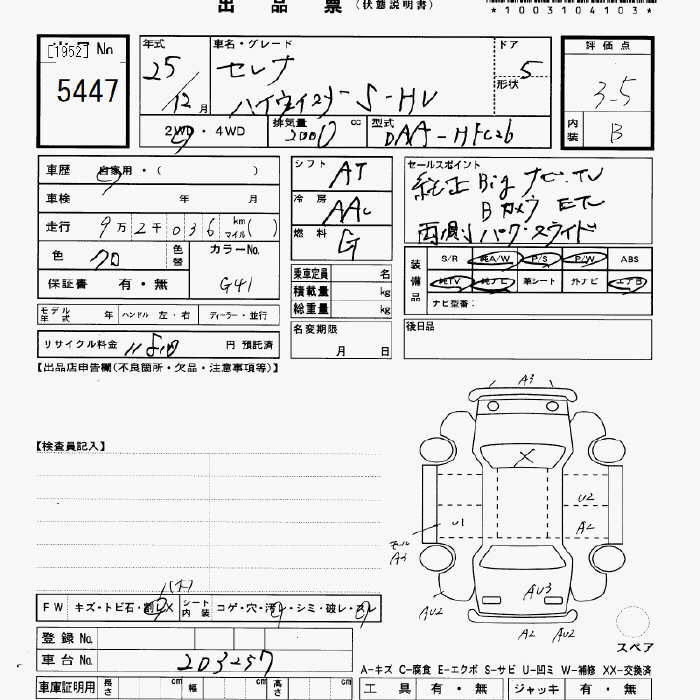 出品票 (状態説明書)
*1003104103*
[1952] No
5447
年式 車名・グレード ドア
25 セレナ 5
12 月 ハイウェイスター S-HV 形状
2WD・4WD 排気量 2000 cc 型式 DAA-HFC26
評価点
3.5
内装 B
車歴 自家用・( )
車検 年 月
走行 9万2千036 km マイル( )
色 クロ 色替 カラーNo. G41
保証書 有・無
シフト AT
冷房 AAC
燃料 G
乗車定員 名
積載量 kg
総重量 kg
セールスポイント
純正 Big ナビ.TV
Bカメラ ETC
両側パワースライド
装備品 S/R 純A/W P/S P/W ABS
純TV 純ナビ 革シート 外ナビ エアB
ナビ型番:
モデル年式 年 ハンドル 左・右 ディーラー・並行
リサイクル料金 円 預託済
名変期限
月 日
後日品
【出品店申告欄(不良箇所・欠品・注意事項等)】
A3
【検査員記入】
U2
U1
A2
モール
A3
AU3
AU2
A2 AU2
スペア
FW キズ・トビ石・割レX シート内装 コゲ・穴・汚レ・シミ・破レ・スレ
登録 No.
車台 No. 203257
A-キズ C-腐食 E-エクボ S-サビ U-凹ミ W-補修 XX-交換済
車庫証明用 長さ cm 幅 cm 高さ cm
工具 有・無 ジャッキ 有・無